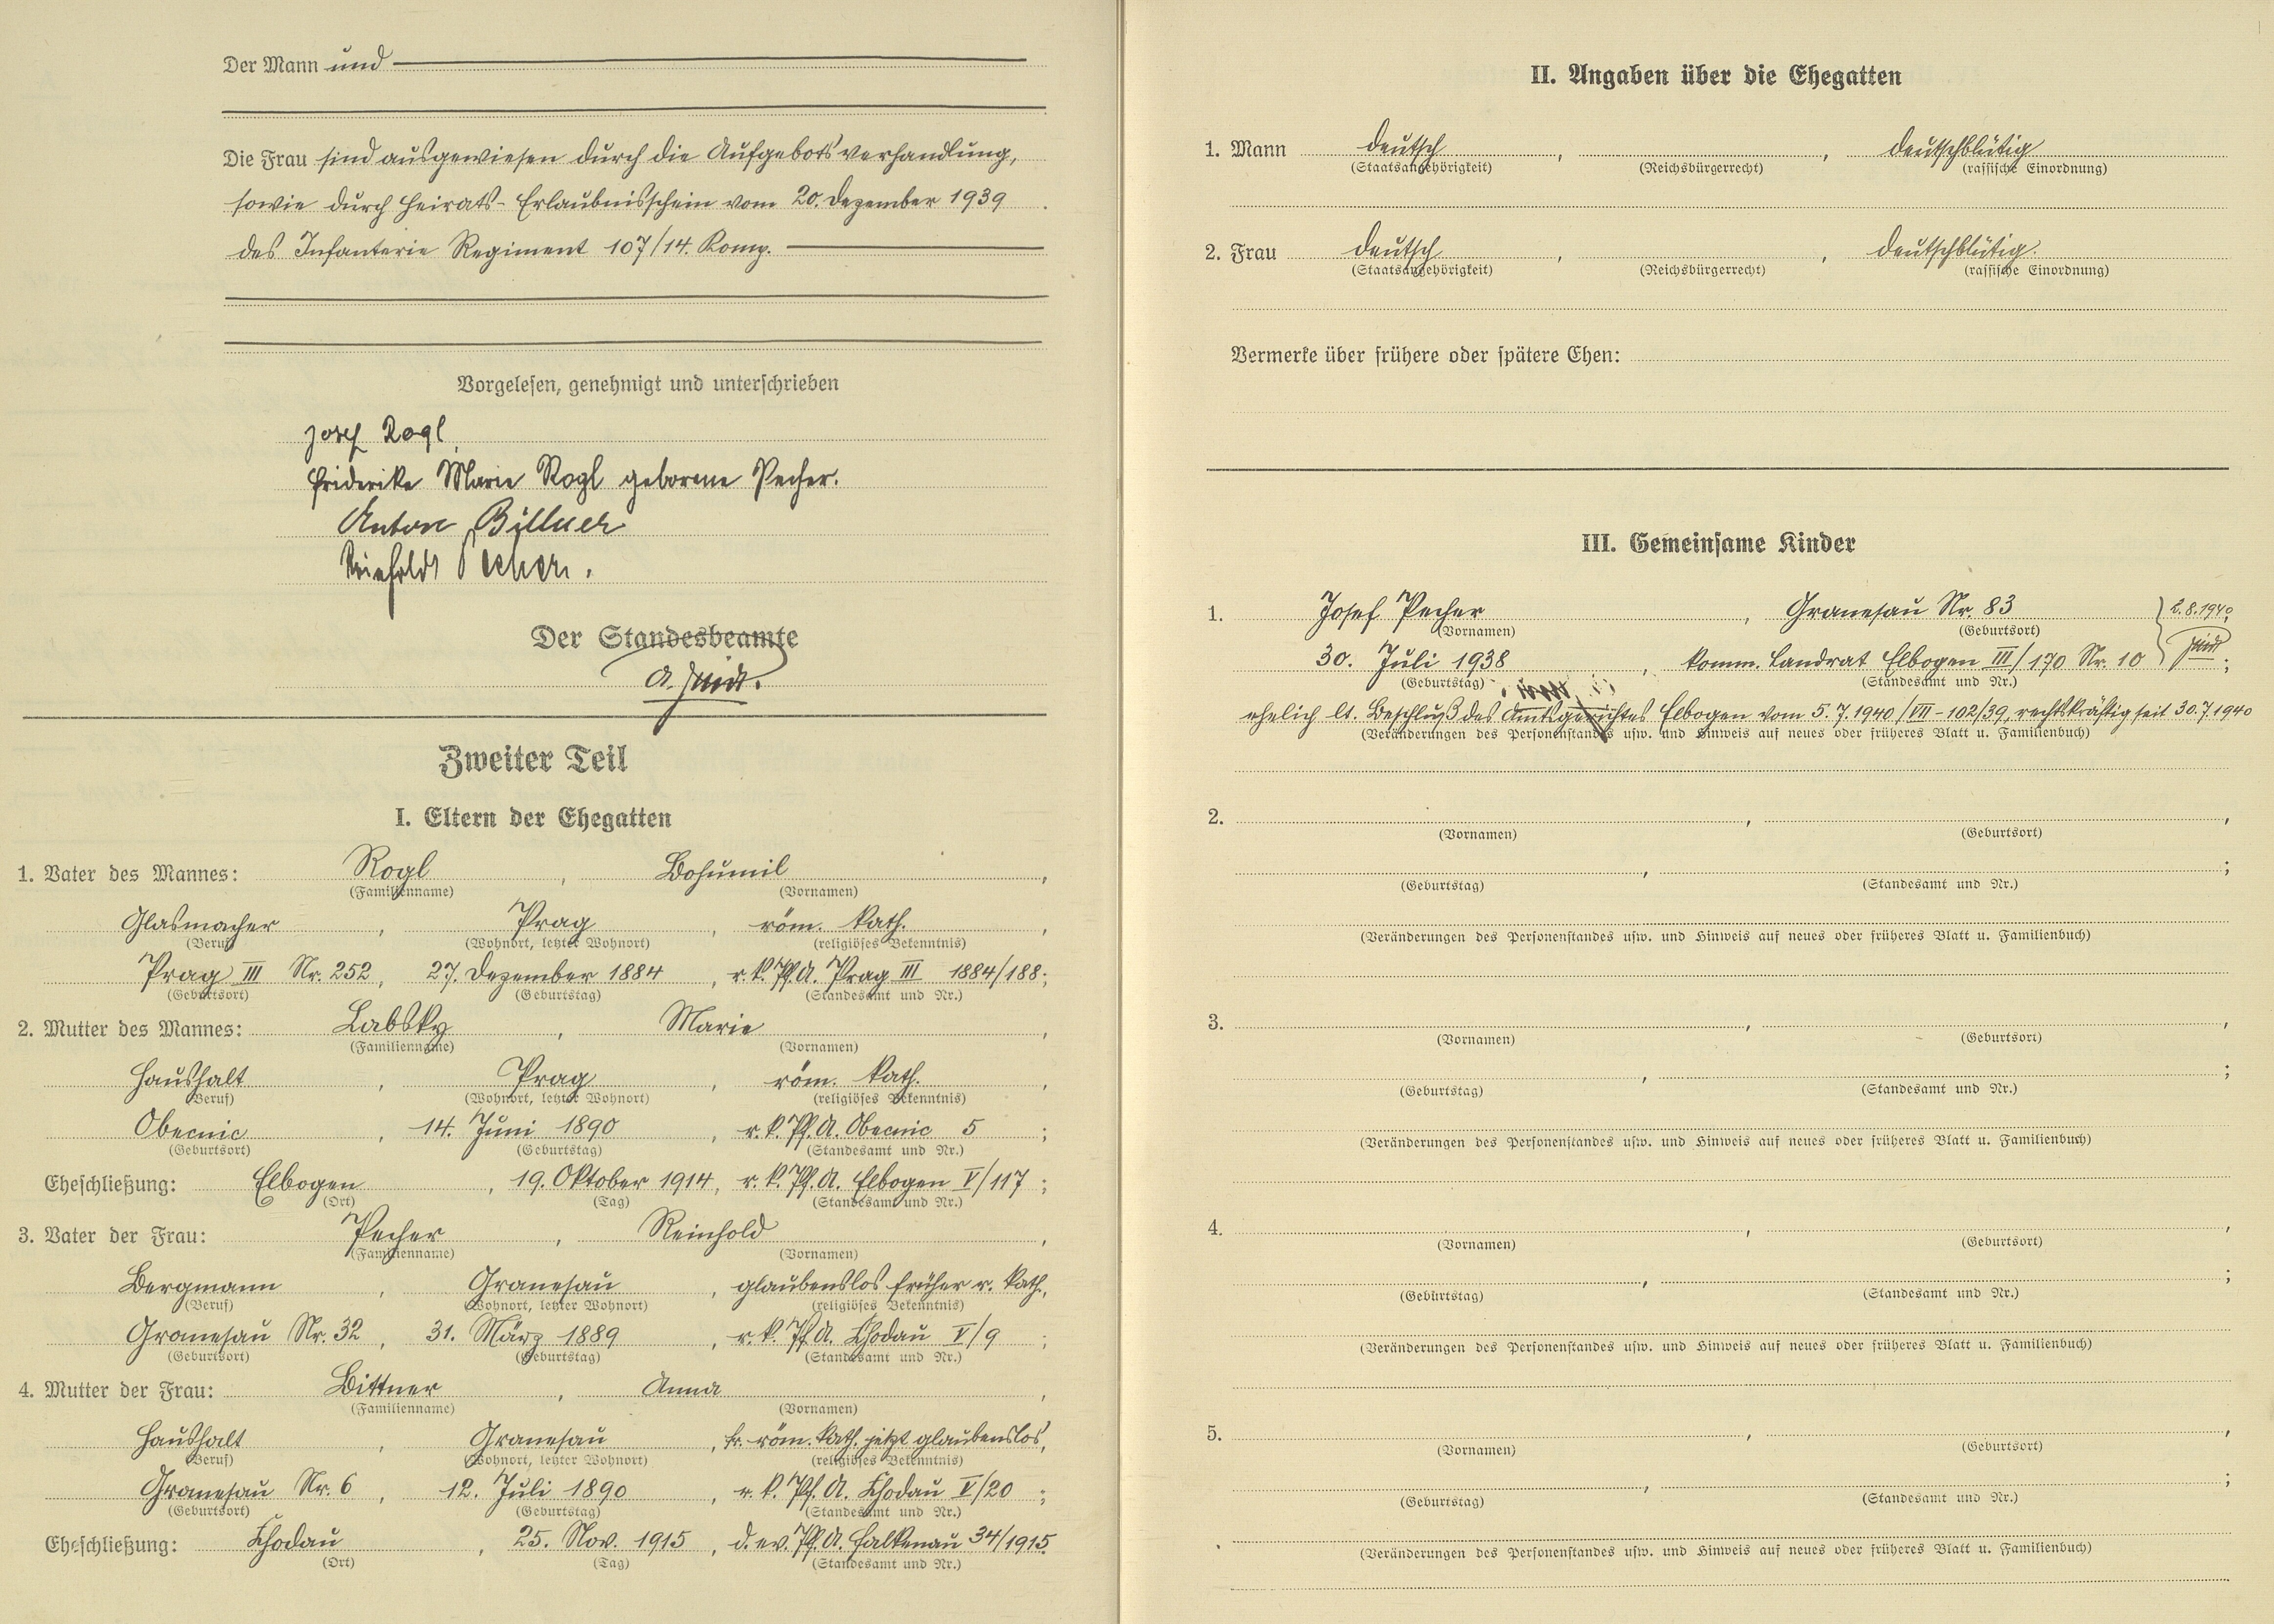 Der Mann und
Die Frau sind ausgewiesen durch die Aufgebotsverhandlung,
sowie durch Heirats-Erlaubnisschein vom 20. Dezember 1939
des Infanterie Regiment 107/14. Komp.
Vorgelesen, genehmigt und unterschrieben
Josef Rogl
Friderike Marie Rogl geborene Pecher.
Anton Bittner
Reinhold Pecher.
Der Standesbeamte
A.
Zweiter Teil
I. Eltern der Ehegatten
1. Vater des Mannes: Rogl, Bohumil,
(Familienname) (Vornamen)
Glasmacher, Prag, röm. kath.,
(Beruf) (Wohnort, letzter Wohnort) (religiöses Bekenntnis)
Prag III Nr. 252, 27. Dezember 1884, r. k. Pf. A. Prag III 1884/188;
(Geburtsort) (Geburtstag) (Standesamt und Nr.)
2. Mutter des Mannes: Labsky, Marie,
(Familienname) (Vornamen)
Haushalt, Prag, röm. kath.,
(Beruf) (Wohnort, letzter Wohnort) (religiöses Bekenntnis)
Obecnic, 14. Juni 1890, r. k. Pf. A. Obecnic 5;
(Geburtsort) (Geburtstag) (Standesamt und Nr.)
Eheschließung: Elbogen, 19. Oktober 1914, r. k. Pf. A. Elbogen V/117;
(Ort) (Tag) (Standesamt und Nr.)
3. Vater der Frau: Pecher, Reinhold,
(Familienname) (Vornamen)
Bergmann, Granesau, glaubenslos früher r. kath.,
(Beruf) (Wohnort, letzter Wohnort) (religiöses Bekenntnis)
Granesau Nr. 32, 31. März 1889, r. k. Pf. A. Chodau V/9;
(Geburtsort) (Geburtstag) (Standesamt und Nr.)
4. Mutter der Frau: Bittner, Anna,
(Familienname) (Vornamen)
Haushalt, Granesau, fr. röm. kath. jetzt glaubenslos,
(Beruf) (Wohnort, letzter Wohnort) (religiöses Bekenntnis)
Granesau Nr. 6, 12. Juli 1890, r. k. Pf. A. Chodau V/20;
(Geburtsort) (Geburtstag) (Standesamt und Nr.)
Eheschließung: Chodau, 25. Nov. 1915, d. ev. Pf. A. Falkenau 34/1915.
(Ort) (Tag) (Standesamt und Nr.)
II. Angaben über die Ehegatten
1. Mann deutsch, , deutschblütig
(Staatsangehörigkeit) (Reichsbürgerrecht) (rassische Einordnung)
2. Frau deutsch, , deutschblütig.
(Staatsangehörigkeit) (Reichsbürgerrecht) (rassische Einordnung)
Vermerke über frühere oder spätere Ehen:
III. Gemeinsame Kinder
1. Josef Pecher, Granesau Nr. 83 2.8.1940,
(Vornamen) (Geburtsort)
30. Juli 1938, komm. Landrat Elbogen III/170 Nr. 10;
(Geburtstag) (Standesamt und Nr.)
ehelich lt. Beschluß des Amtsgerichtes Elbogen vom 5.7.1940/VII-102/39, rechtskräftig seit 30.7.1940
(Veränderungen des Personenstandes usw. und Hinweis auf neues oder früheres Blatt u. Familienbuch)
2. , ,
(Vornamen) (Geburtsort)
, ;
(Geburtstag) (Standesamt und Nr.)
(Veränderungen des Personenstandes usw. und Hinweis auf neues oder früheres Blatt u. Familienbuch)
3. , ,
(Vornamen) (Geburtsort)
, ;
(Geburtstag) (Standesamt und Nr.)
(Veränderungen des Personenstandes usw. und Hinweis auf neues oder früheres Blatt u. Familienbuch)
4. , ,
(Vornamen) (Geburtsort)
, ;
(Geburtstag) (Standesamt und Nr.)
(Veränderungen des Personenstandes usw. und Hinweis auf neues oder früheres Blatt u. Familienbuch)
5. , ,
(Vornamen) (Geburtsort)
, ;
(Geburtstag) (Standesamt und Nr.)
(Veränderungen des Personenstandes usw. und Hinweis auf neues oder früheres Blatt u. Familienbuch)